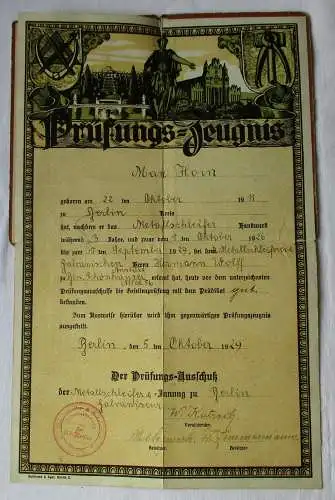 Prüfungs-Zeugnis
Max Horn
geboren am 22 ten Oktober 19 11
zu Berlin Kreis
hat, nachdem er das Metallschleifer Handwerk
während 3 Jahre, und zwar vom 1 Oktober 1926
bis zum 15 September 1929 bei dem Metallschleifer
Galvaniseur Herrn Hermann Wolff
in Bln Schönhauser erlernt hat, heute vor dem unterzeichneten
Allee
Prüfungsausschusse die Gesellenprüfung mit dem Prädikat gut
bestanden.
Zum Ausweise hierüber wird ihm gegenwärtiges Prüfungszeugnis
ausgestellt.
Berlin, den 5 ten Oktober 1929
Der Prüfungs-Ausschuß
der Metallschleifer & -Innung zu Berlin
Galvaniseur
Vorsitzender
W. Zimmermann
Beisitzer Beisitzer